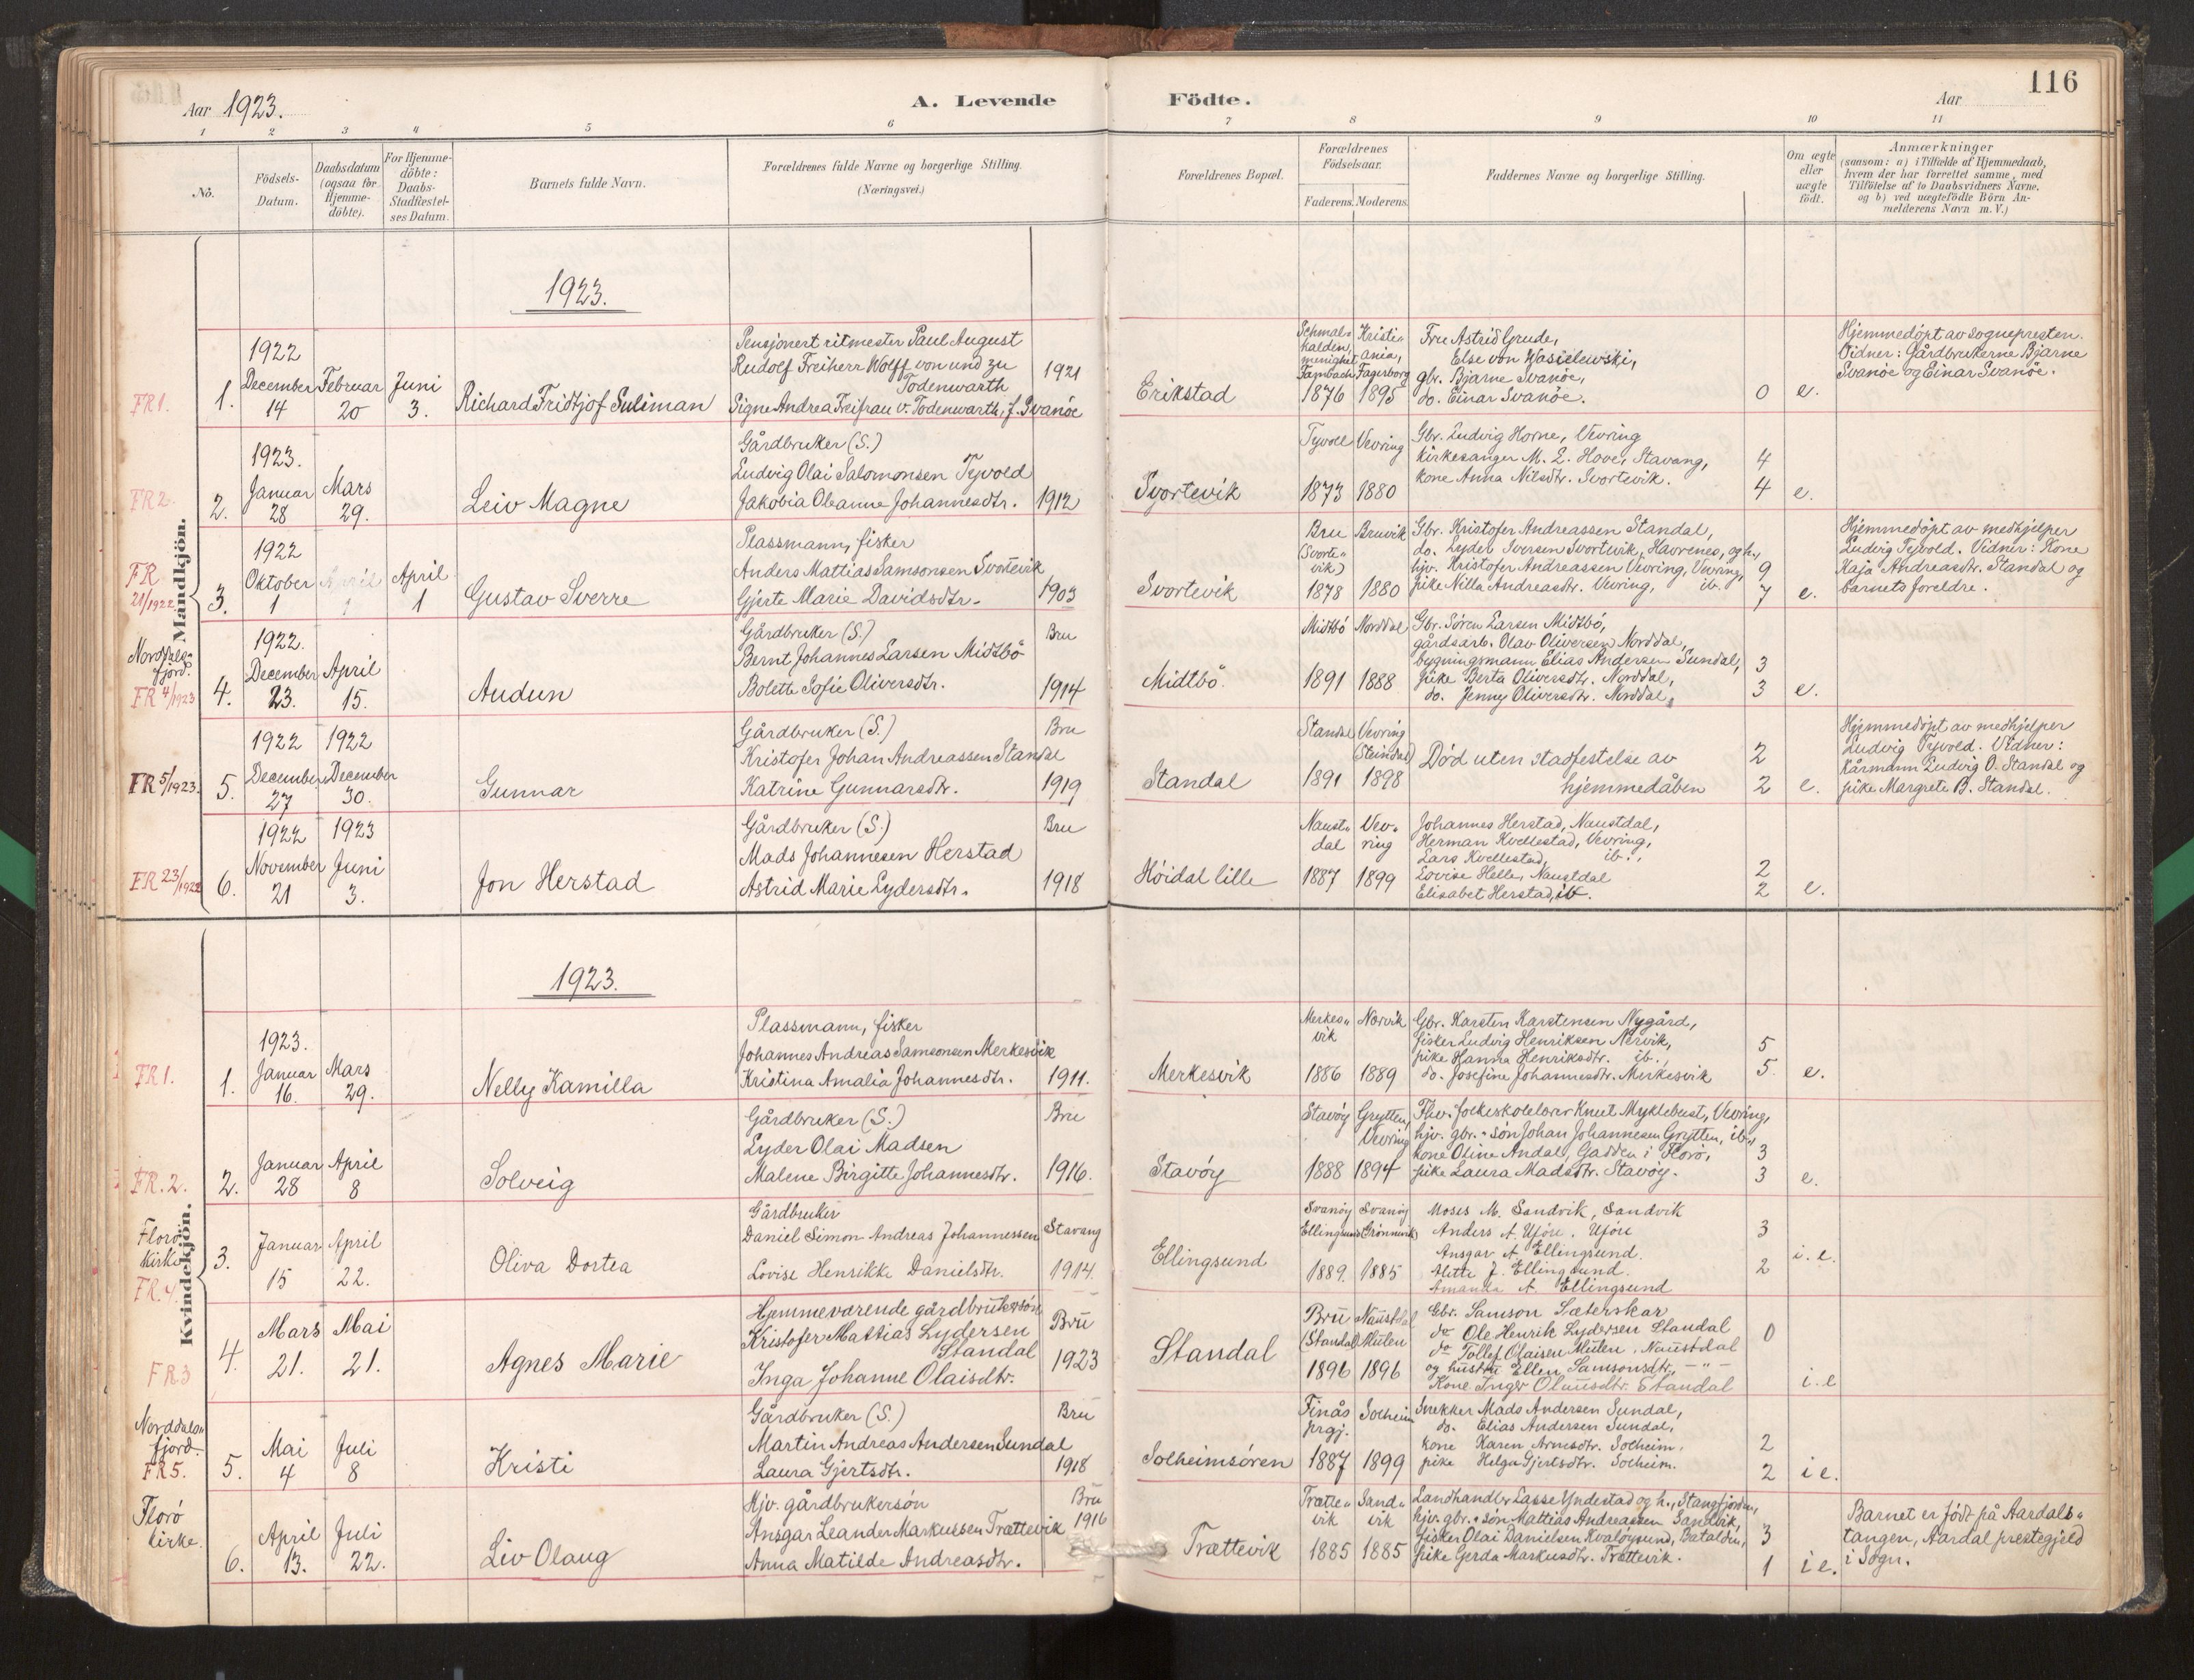 Aar 1923.
A. Levende Födte.
Aar
116
1 2 3 4 5 6 7 8 9 10 11
No.
Födsels-Datum.
Daabsdatum (ogsaa for Hjemme-döbte).
For Hjemme-döbte: Daabs-Stadfæstel-ses Datum.
Barnets fulde Navn.
Forældrenes fulde Navne og borgerlige Stilling.
(Næringsvei.)
Forældrenes Bopæl.
Forældrenes Födselsaar.
Faderens. Moderens.
Faddernes Navne og borgerlige Stilling.
Om ægte eller uægte födt.
Anmærkninger
(saasom: a) i Tilfælde af Hjemmedaab,
hvem der har forrettet samme, med
Tilföielse af to Daabsvidners Navne,
og b) ved uægtefödte Börn An-
melderens Navn m. V.)
Mandkjön.
1923.
FR 1.
1.
1922
December
14
Februar
20
Juni
3.
Richard Fridtjof Suliman
Pensjonert ritmester Paul August
Rudolf Freiherr Wolff von und zu
Todenwarth
Signe Andrea Freifrau v. Todenwarth, f. Svanöe
1921
Erikstad
Schmal-
kalden,
menighet
Fambach
1876
Kristi-
ania,
Fagerborg
1895
Fru Astrid Grude,
Else von Wasielewski,
gbr. Bjarne Svanöe,
do. Einar Svanöe.
0
e.
Hjemmedöpt av sognepresten.
Vidner: Gårdbrukerne Bjarne
Svanöe og Einar Svanöe.
FR 2.
2.
1923.
Januar
28
Mars
29.
Leiv Magne
Gårdbruker (S.)
Ludvig Olai Salomonsen Tyvold
Jakobia Oleanne Johannesdtr.
1912
Svortevik
Tyvoll
1873
Vevring
1880
Gbr. Ludvig Horne, Vevring
kirkesanger M. E. Hove, Stavang,
kone Anna Nilsdtr. Svortevik.
4
4
e.
FR
21/1922
3.
1922
Oktober
1
April
1
April
1
Gustav Sverre
Plassmann, fisker
Anders Mattias Samsonsen Svortevik
Gjerte Marie Davidsdtr.
1903
Svortevik
Bru
(Svorte-
vik)
1878
Bruvik
1880
Gbr. Kristofer Andreassen Standal,
do. Lyder Iversen Svortevik, Havrenes, og h.,
hjv. Kristofer Andreassen Vevring, Vevring,
pike Nilla Andreasdtr. Vevring, ib.
9
7
e.
Hjemmedöpt av medhjelper
Ludvig Tyvold. Vidner: Kone
Kaja Andreasdtr. Standal og
barnets foreldre.
Norddals-
fjord.
FR 4/1923
4.
1922.
December
23.
April
15.
Audun
Gårdbruker (S.)
Bernt Johannes Larsen Midtbö
Bolette Sofie Oliversdtr.
Bru
1914
Midtbö
Midtbö
1891
Norddal
1888
Gbr. Sören Larsen Midtbö,
gårdsarb. Olav Oliversen Norddal,
bygningsmann Elias Andersen Sundal,
pike Berta Oliversdtr. Norddal,
do. Jenny Oliversdtr. Norddal.
3
3
e.
FR 5/1923.
5.
1922
December
27
1922
December
30.
Gunnar
Gårdbruker (S.)
Kristofer Johan Andreassen Standal
Katrine Gunnarsdtr.
Bru
1919
Standal
Standal
1891
Vevring
(Steindal)
1898
Död uten stadfestelse av
hjemmedåben
2
2
e.
Hjemmedöpt av medhjelper
Ludvig Tyvold. Vidner:
Kårmann Ludvig O. Standal og
pike Margrete B. Standal.
FR 23/1922
6.
1922
November
21
1923
Juni
3.
Jon Herstad
Gårdbruker (S.)
Mads Johannesen Herstad
Astrid Marie Lydersdtr.
Bru
1918
Höidal lille
Naust-
dal
1887
Vev-
ring
1899
Johannes Herstad, Naustdal,
Herman Kvellestad, Vevring,
Lars Kvellestad, ib.,
Lovise Helle, Naustdal
Elisabet Herstad, ib.
2
2
e.
Kvindekjön.
1923.
FR 1.
1.
1923.
Januar
16.
Mars
29.
Nelly Kamilla
Plassmann, fisker
Johannes Andreas Samsonsen Merkesvik
Kristina Amalia Johannesdtr.
1911.
Merkesvik
Merkes-
vik
1886
Nærvik
1889
Gbr. Karsten Karstensen Nygård,
fisker Ludvig Henriksen Nervik,
pike Hanna Henriksdtr. ib.,
do. Josefine Johannesdtr. Merkesvik
5
5.
e.
FR. 2.
2.
Januar
28
April
8
Solveig
Gårdbruker (S.)
Lyder Olai Madsen
Malene Birgitte Johannesdtr.
Bru
1916.
Stavöy
Stavöy
1888
Grytten,
Vevring
1894
Fhv. folkeskolelærer Knut Myklebust, Vevring,
hjv. gbr.-sön Johan Johannesen Grytten, ib.,
kone Oline Andal, Gadden i Florö,
pike Laura Madsdtr. Stavöy.
3
3
e.
Florö
Kirke
FR. 4.
3.
Januar
15
April
22.
Oliva Dortea
Gårdbruker
Daniel Simon Andreas Johannessen
Lovise Henrikke Danielsdtr.
Stavang
1914.
Ellingsund
Svanöy
Ellingsund
1889.
Svanöy
(Grönnevik)
1885
Moses M. Sandvik, Sandvik
Anders A. Uföre. Uföre
Ansgar A. Ellingsund.
Alette J. Ellingsund.
Amanda A. Ellingsund
3
2
i. e.
FR 3
4.
Mars
21.
Mai
21.
Agnes Marie
Hjemmeværende gårdbrukersön
Kristofer Mattias Lydersen
Standal
Inga Johanne Olaisdtr.
Bru
1923
Standal
Bru
(Standal)
1896
Naustdal
Mulen
1896
Gbr. Samson Sæterskar
do Ole Henrik Lydersen Standal
do Tollef Olaisen Mulen, Naustdal
og hustru Ellen Samsonsdtr, — " —
Kone Inger Olausdtr. Standal
0
i. e
Norddals-
fjord.
FR 5.
5.
Mai
4
Juli
8
Kristi
Gårdbruker (S.)
Martin Andreas Andersen Sundal
Laura Gjertsdtr.
Bru
1918
Solheimsören
Finås
prgj.
1887
Solheim
1899
Snekker Mads Andersen Sundal,
do. Elias Andersen Sundal,
kone Karen Arnesdtr. Solheim,
pike Helga Gjertsdtr. Solheim.
2
2
i e.
Florö
kirke.
6.
April
13.
Juli
22.
Liv Olaug
Hjv. gårdbrukersön
Ansgar Leander Markussen Trættevik
Anna Matilde Andreasdtr.
Bru
1916
Trættevik
Trætte-
vik
1885
Sand-
vik
1885
Landhandler Lasse Yndestad og h., Stangfjorden,
hjv. gbr.-sön Mattias Andreassen Sandvik,
fisker Olai Danielsen Kvalöysund, Batalden,
pike Gerda Markusdtr. Trættevik.
3
1
i e.
Barnet er födt på Aardals-
tangen, Aardal prestegjeld
i Sogn.